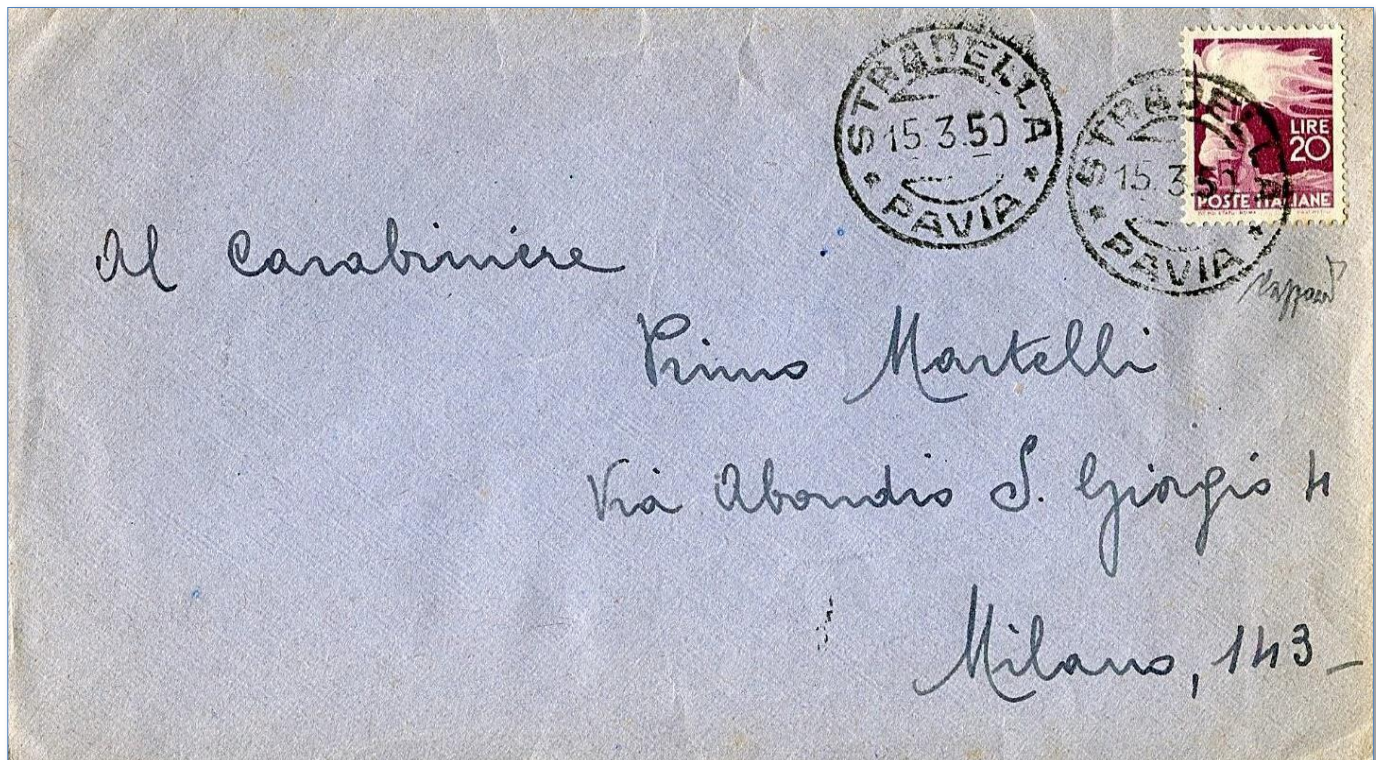 STRADELLA
15.3.50
PAVIA
STRADELLA
15.3.50
PAVIA
LIRE
20
POSTE ITALIANE
Al Carabiniere
Primo Martelli
Via Abondio S. Giorgio 4
Milano, 143-